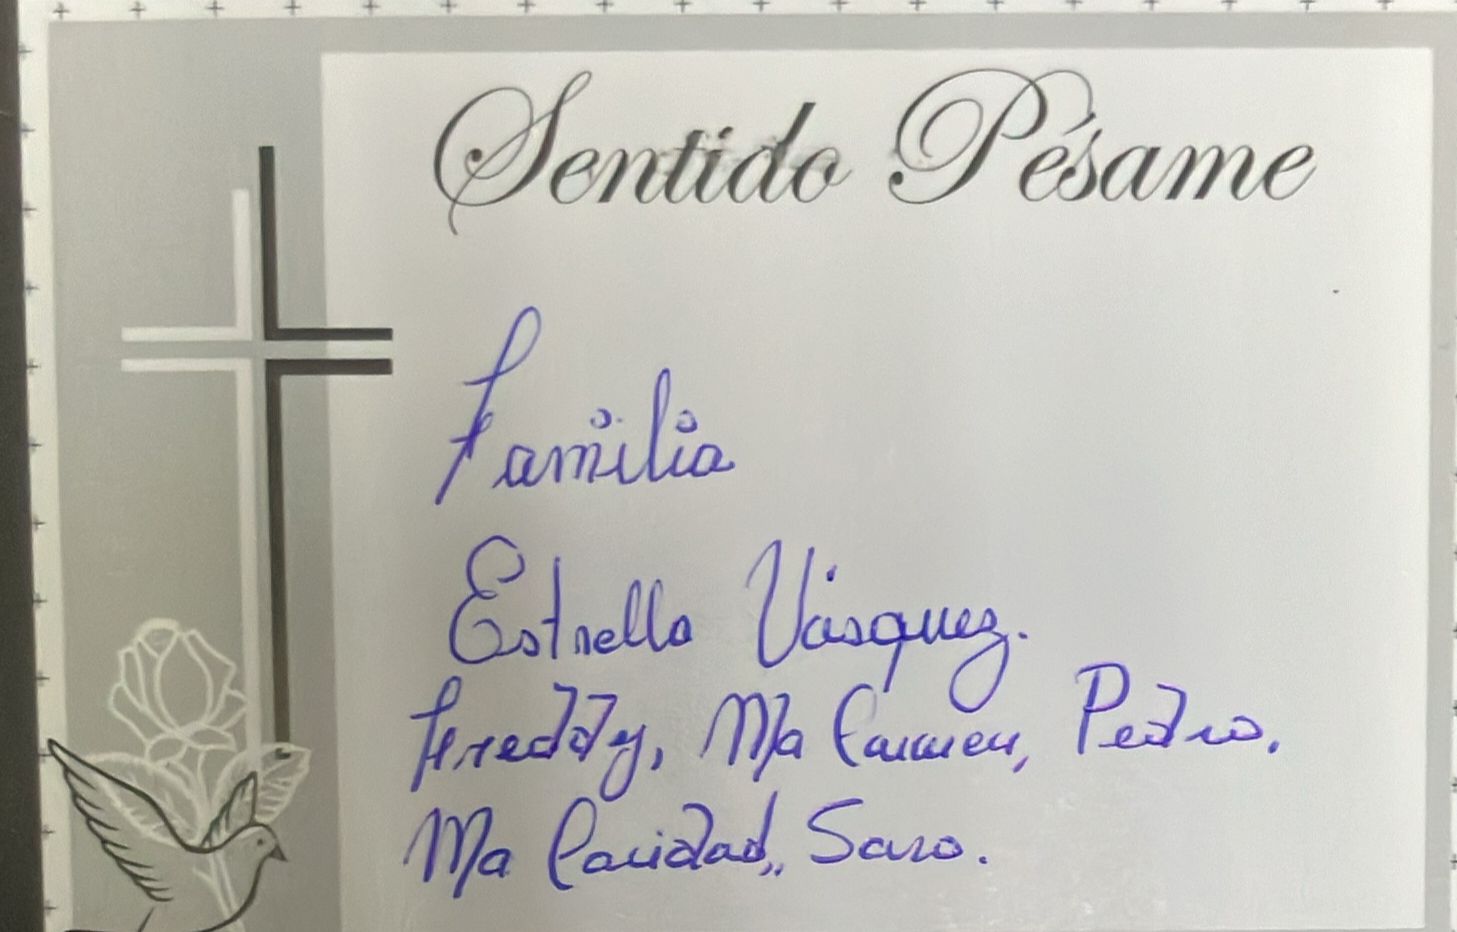 Sentido Pésame
Familia
Estrella Vásquez.
Freddy, Ma Carmen, Pedro.
Ma Caridad,, Saro.